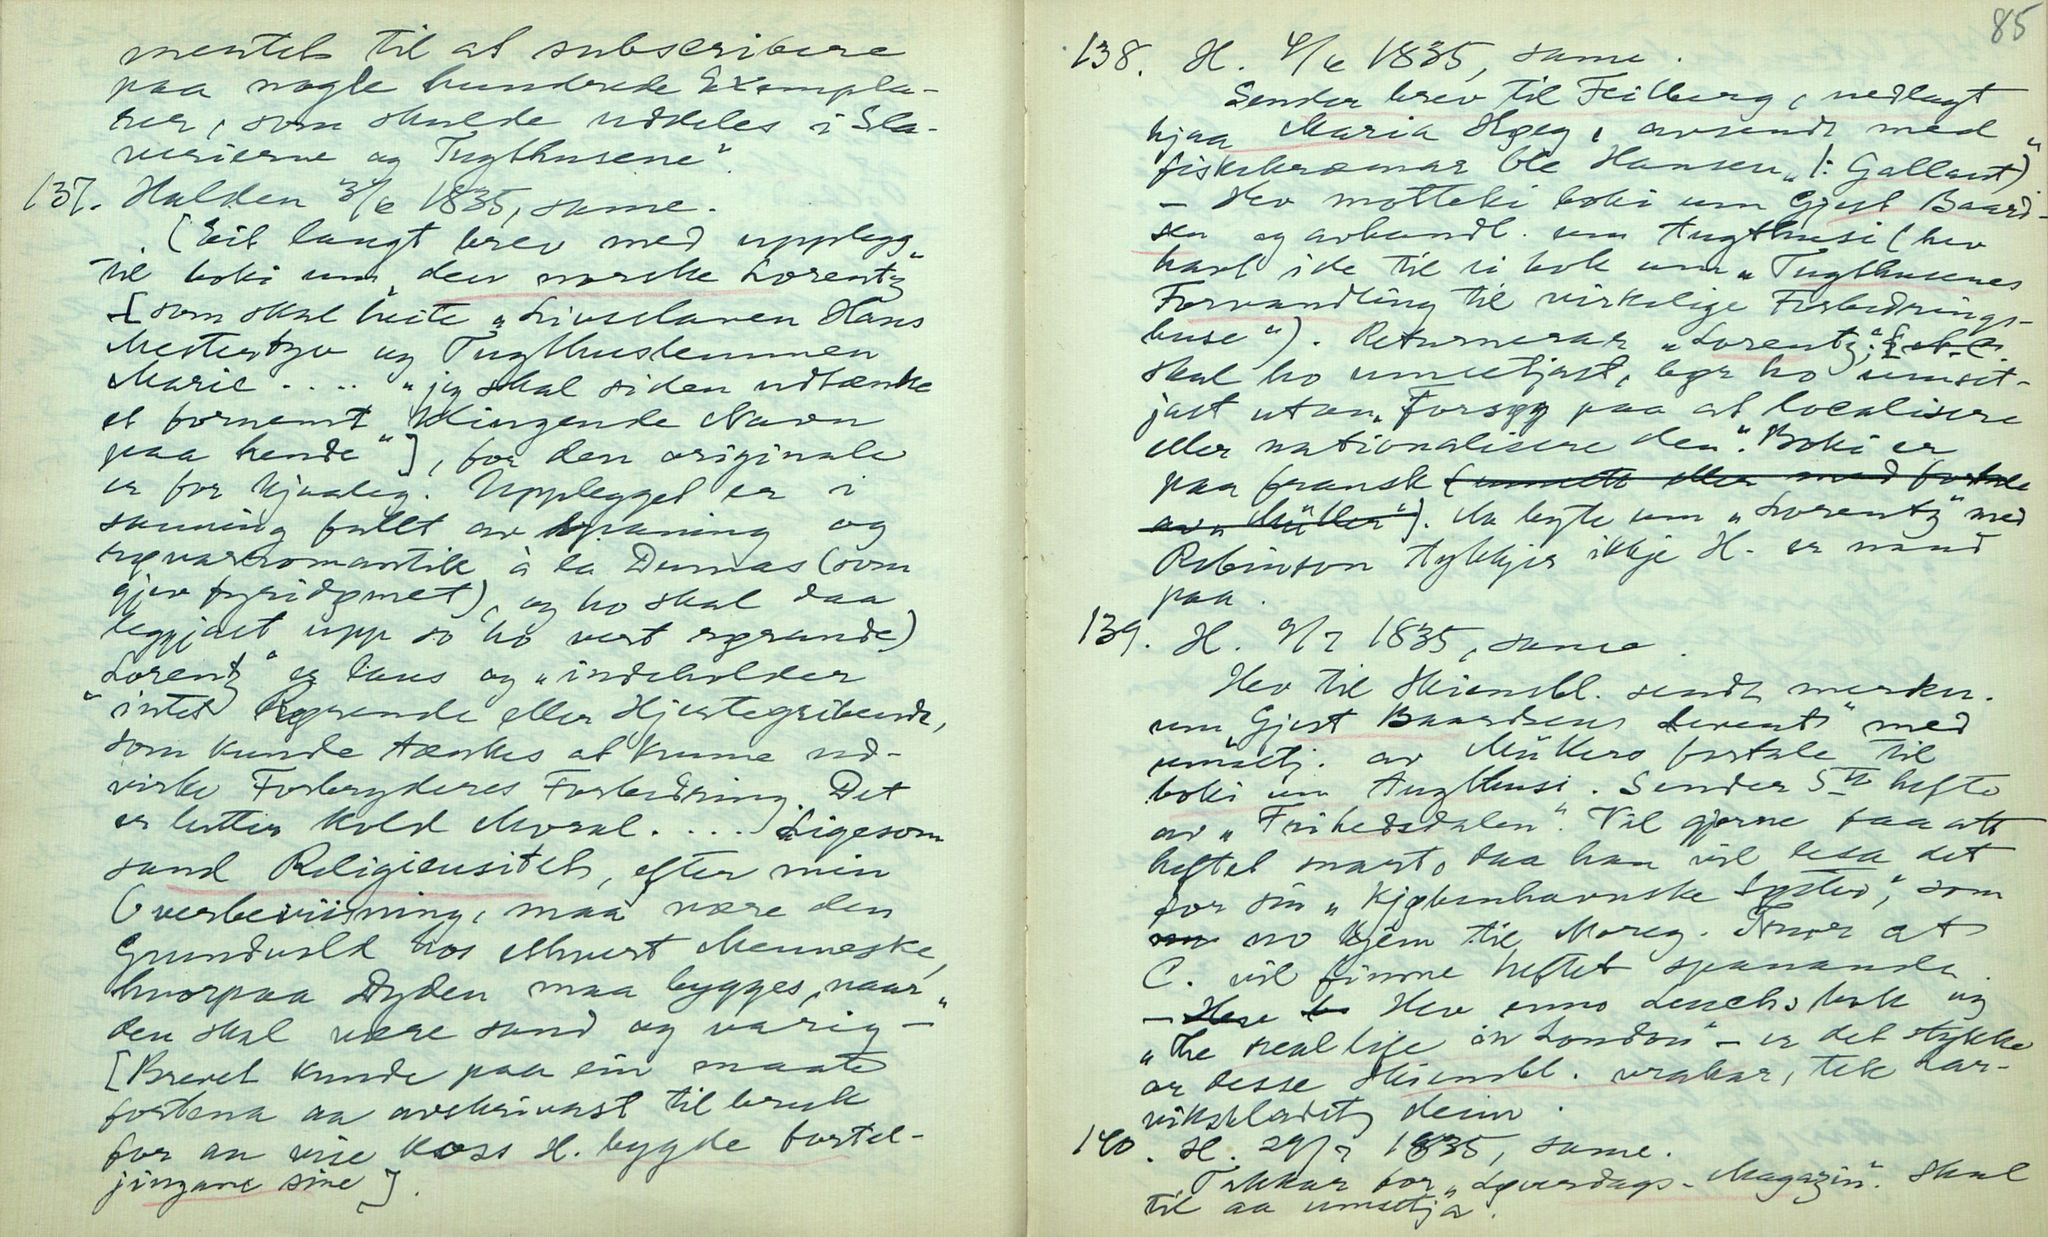 mentet til at subscribere
paa nogle hundrede Exempla-
rer, som skulde uddeles i Sla-
verierne og Tugthusene".
137. Halden 3/6 1835, same.
[Eit langt brev med upplegg
til boki um "den norske Lorentz"
[som skal heite "Livsslaven Hans
Mestertyv og Tugthuslemmen
Marie .... "jeg skal siden udtænke
et fornemt klingende Navn
paa hende"], for den originale
er for kjualeg. Upplegget er i
sanning fullt av spaning og
røvarromantik à la Dumas (som
gjev fyridømet), og ho skal daa
leggjast upp so ho vert rørande)
Lorentz" er laus og "indeholder
"intet Rørende eller Hjertegribende,
som kunde tænkes at kunne ud-
virke Forbryderes Forbedring. Det
er lutter kold Moral. .... Ligesom
sand Religieusitet, efter min
Overbeviisning, maa være den
Grundvold hos ethvert Menneske,
hvorpaa Dyden maa bygges, naar
den skal være sand og varig -"
[Brevet kunde paa ein maate
fortena aa avskrivast til bruk
for aa vise koss H. bygde fortel-
jingane sine].
85
138. H. 4/6 1835, same.
Sender brev til Feilberg, nedlagt
hjaa Maria Høeg, avsendt med
fiskekræmar Ole Hansen "(: Gallant)"
- Hev motteki boki um Gjest Baard-
sen og avhandl. um Tugthusi (hev
havt ide til ei bok um "Tugthusenes
Forvandling til virkelige Forbedrings-
huse"). Returnerar "Lorentz".
skal ho umsetjast, bør ho umset-
jast utan "Forsøg paa at localisere
eller nationalisere den". Boki er
paa fransk (umsett eller med fortale
av "Müller"). Aa byte um "Lorentz" med
Robinson tykkjer ikkje H. er maud
paa.
139. H. 9/7 1835, same.
Hev til Skiensbl. sendt merkn.
um "Gjest Baardsens Levnet" med
umsetj. av Müllers fortale til
boki um Tugthusi. Sender 5te hefte
av "Frihedsdalen". Vil gjerne faa att
heftet snart, daa han vil lesa det
for sin "Kjøbenhavnske Syster", som
no kjem til Noreg. Trur at
C. vil finne heftet spanande.
- Hev enno Leuchs bok og
"The real life in London" - er det stykke
av desse Skiensbl. vrakar, tek Lar-
viksbladet deim.
140. H. 29/7 1835, same.
Takkar for "Løverdags-Magazin". Skal
til aa umsetja.